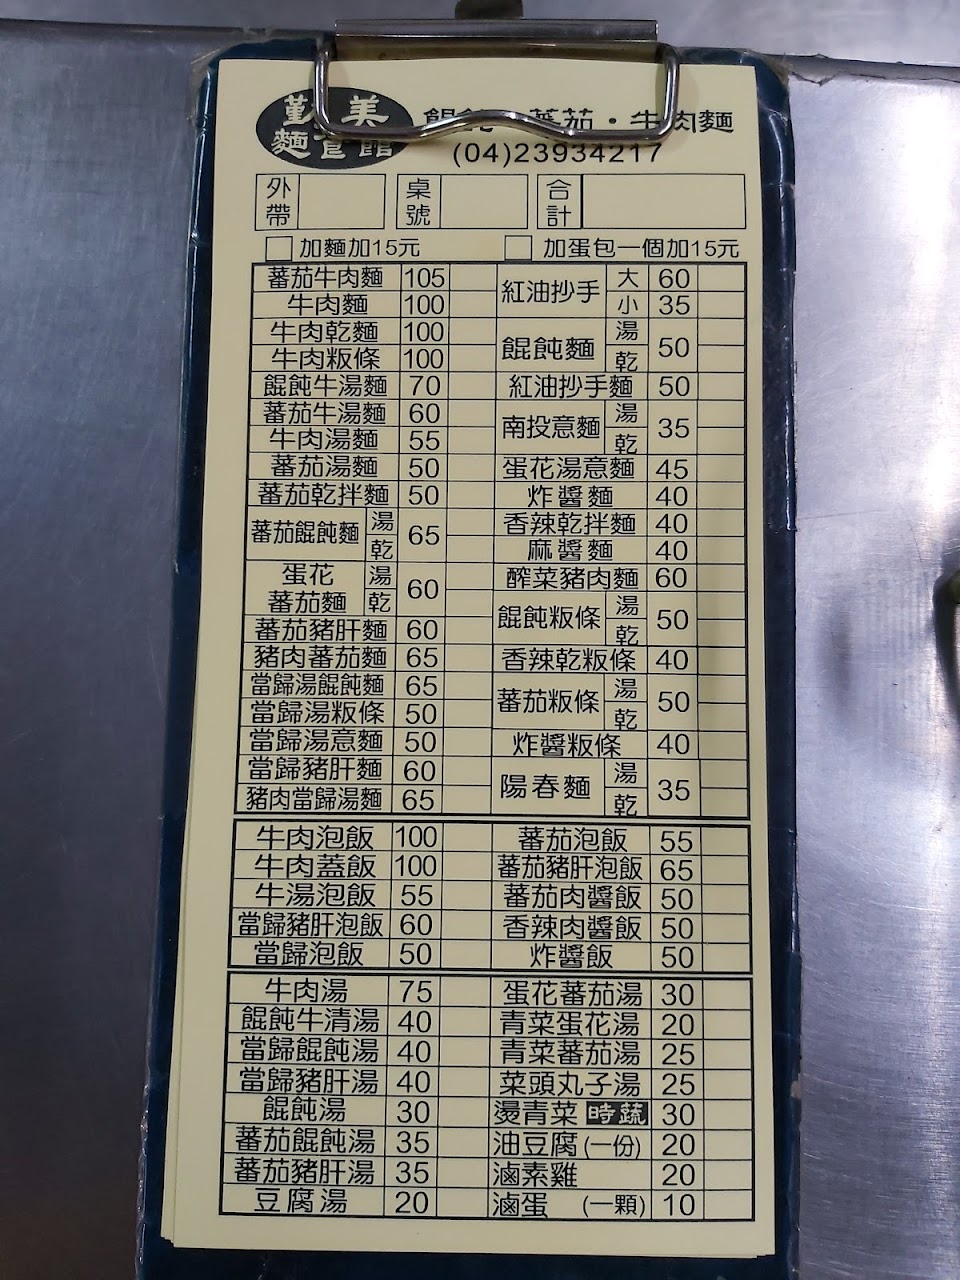 勤美
麵食館
餛飩·蕃茄·牛肉麵
(04)23934217
外帶 桌號 合計
加麵加15元 加蛋包一個加15元
蕃茄牛肉麵 105 紅油抄手 大 60
牛肉麵 100 小 35
牛肉乾麵 100 餛飩麵 湯 乾 50
牛肉粄條 100
餛飩牛湯麵 70 紅油抄手麵 50
蕃茄牛湯麵 60 南投意麵 湯 乾 35
牛肉湯麵 55
蕃茄湯麵 50 蛋花湯意麵 45
蕃茄乾拌麵 50 炸醬麵 40
蕃茄餛飩麵 湯 乾 65 香辣乾拌麵 40
麻醬麵 40
蛋花蕃茄麵 湯 乾 60 醡菜豬肉麵 60
餛飩粄條 湯 乾 50
蕃茄豬肝麵 60
豬肉蕃茄麵 65 香辣乾粄條 40
當歸湯餛飩麵 65 蕃茄粄條 湯 乾 50
當歸湯粄條 50
當歸湯意麵 50 炸醬粄條 40
當歸豬肝麵 60 陽春麵 湯 乾 35
豬肉當歸湯麵 65
牛肉泡飯 100 蕃茄泡飯 55
牛肉蓋飯 100 蕃茄豬肝泡飯 65
牛湯泡飯 55 蕃茄肉醬飯 50
當歸豬肝泡飯 60 香辣肉醬飯 50
當歸泡飯 50 炸醬飯 50
牛肉湯 75 蛋花蕃茄湯 30
餛飩牛清湯 40 青菜蛋花湯 20
當歸餛飩湯 40 青菜蕃茄湯 25
當歸豬肝湯 40 菜頭丸子湯 25
餛飩湯 30 燙青菜 時蔬 30
蕃茄餛飩湯 35 油豆腐(一份) 20
蕃茄豬肝湯 35 滷素雞 20
豆腐湯 20 滷蛋 (一顆) 10